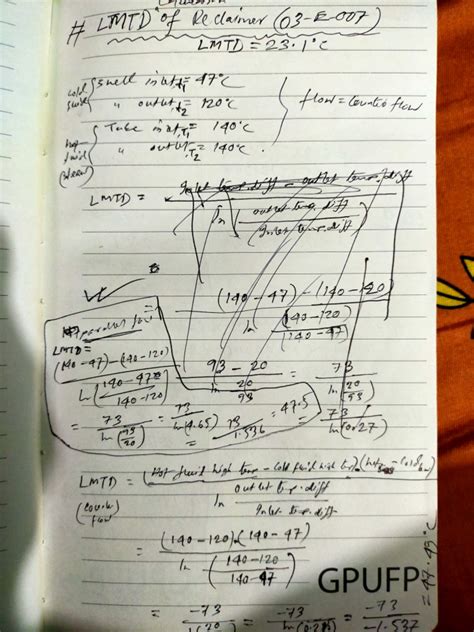 # LMTD of Reclaimer (03-E-007)
LMTD = 23.1°C
cold fluid { Shell inlet, t1 = 47°C
" outlet, t2 = 120°C
} flow = Counter flow
hot fluid (steam) { Tube inlet, T1 = 140°C
" outlet, T2 = 140°C.
LMTD = Inlet temp. diff - outlet temp. diff
ln (outlet temp. diff
Inlet temp. diff)
= (140-47) - (140-120)
ln (140-120)
(140-47)
parallel flow
LMTD =
(140-47)-(140-120)
ln (140-47
140-120)
= 73
ln(93
20)
= 73
ln(4.65)
= 73
1.536
= 47.5
93 - 20
ln 20
93
= 73
ln 20
93
= 73
ln 0.27
LMTD = (Hot fluid high temp - Cold fluid high temp)
ln outlet temp. diff
Inlet temp. diff
(Counter flow)
= (140-120)-(140-47)
ln (140-120)
(140-47)
= -73
= -73
ln(0.215)
= -73
-1.537
= 47.49°C
GPUFP